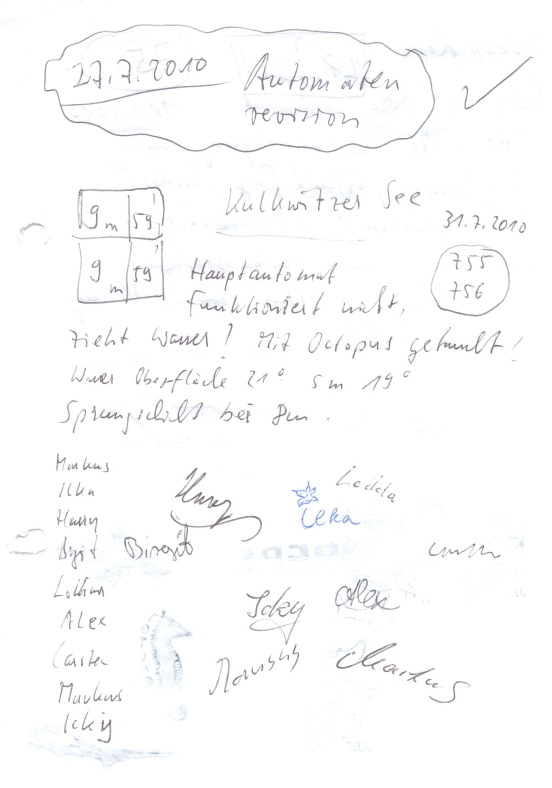 27.7.2010 Automaten
revision
Kulkwitzer See
31.7.2010
9 m 59'
9 m 59'
755
756
Hauptautomat
funktioniert nicht,
zieht Wasser! Mit Octopus getaucht!
Wasser Oberfläche 21° 5m 19°
Sprungschicht bei 8m.
Markus
Ilka
Harry
Birgit Birgit
Lothar
Alex
Carsten
Markus
Icky
Harry
Ilka
Icky Alex
Markus